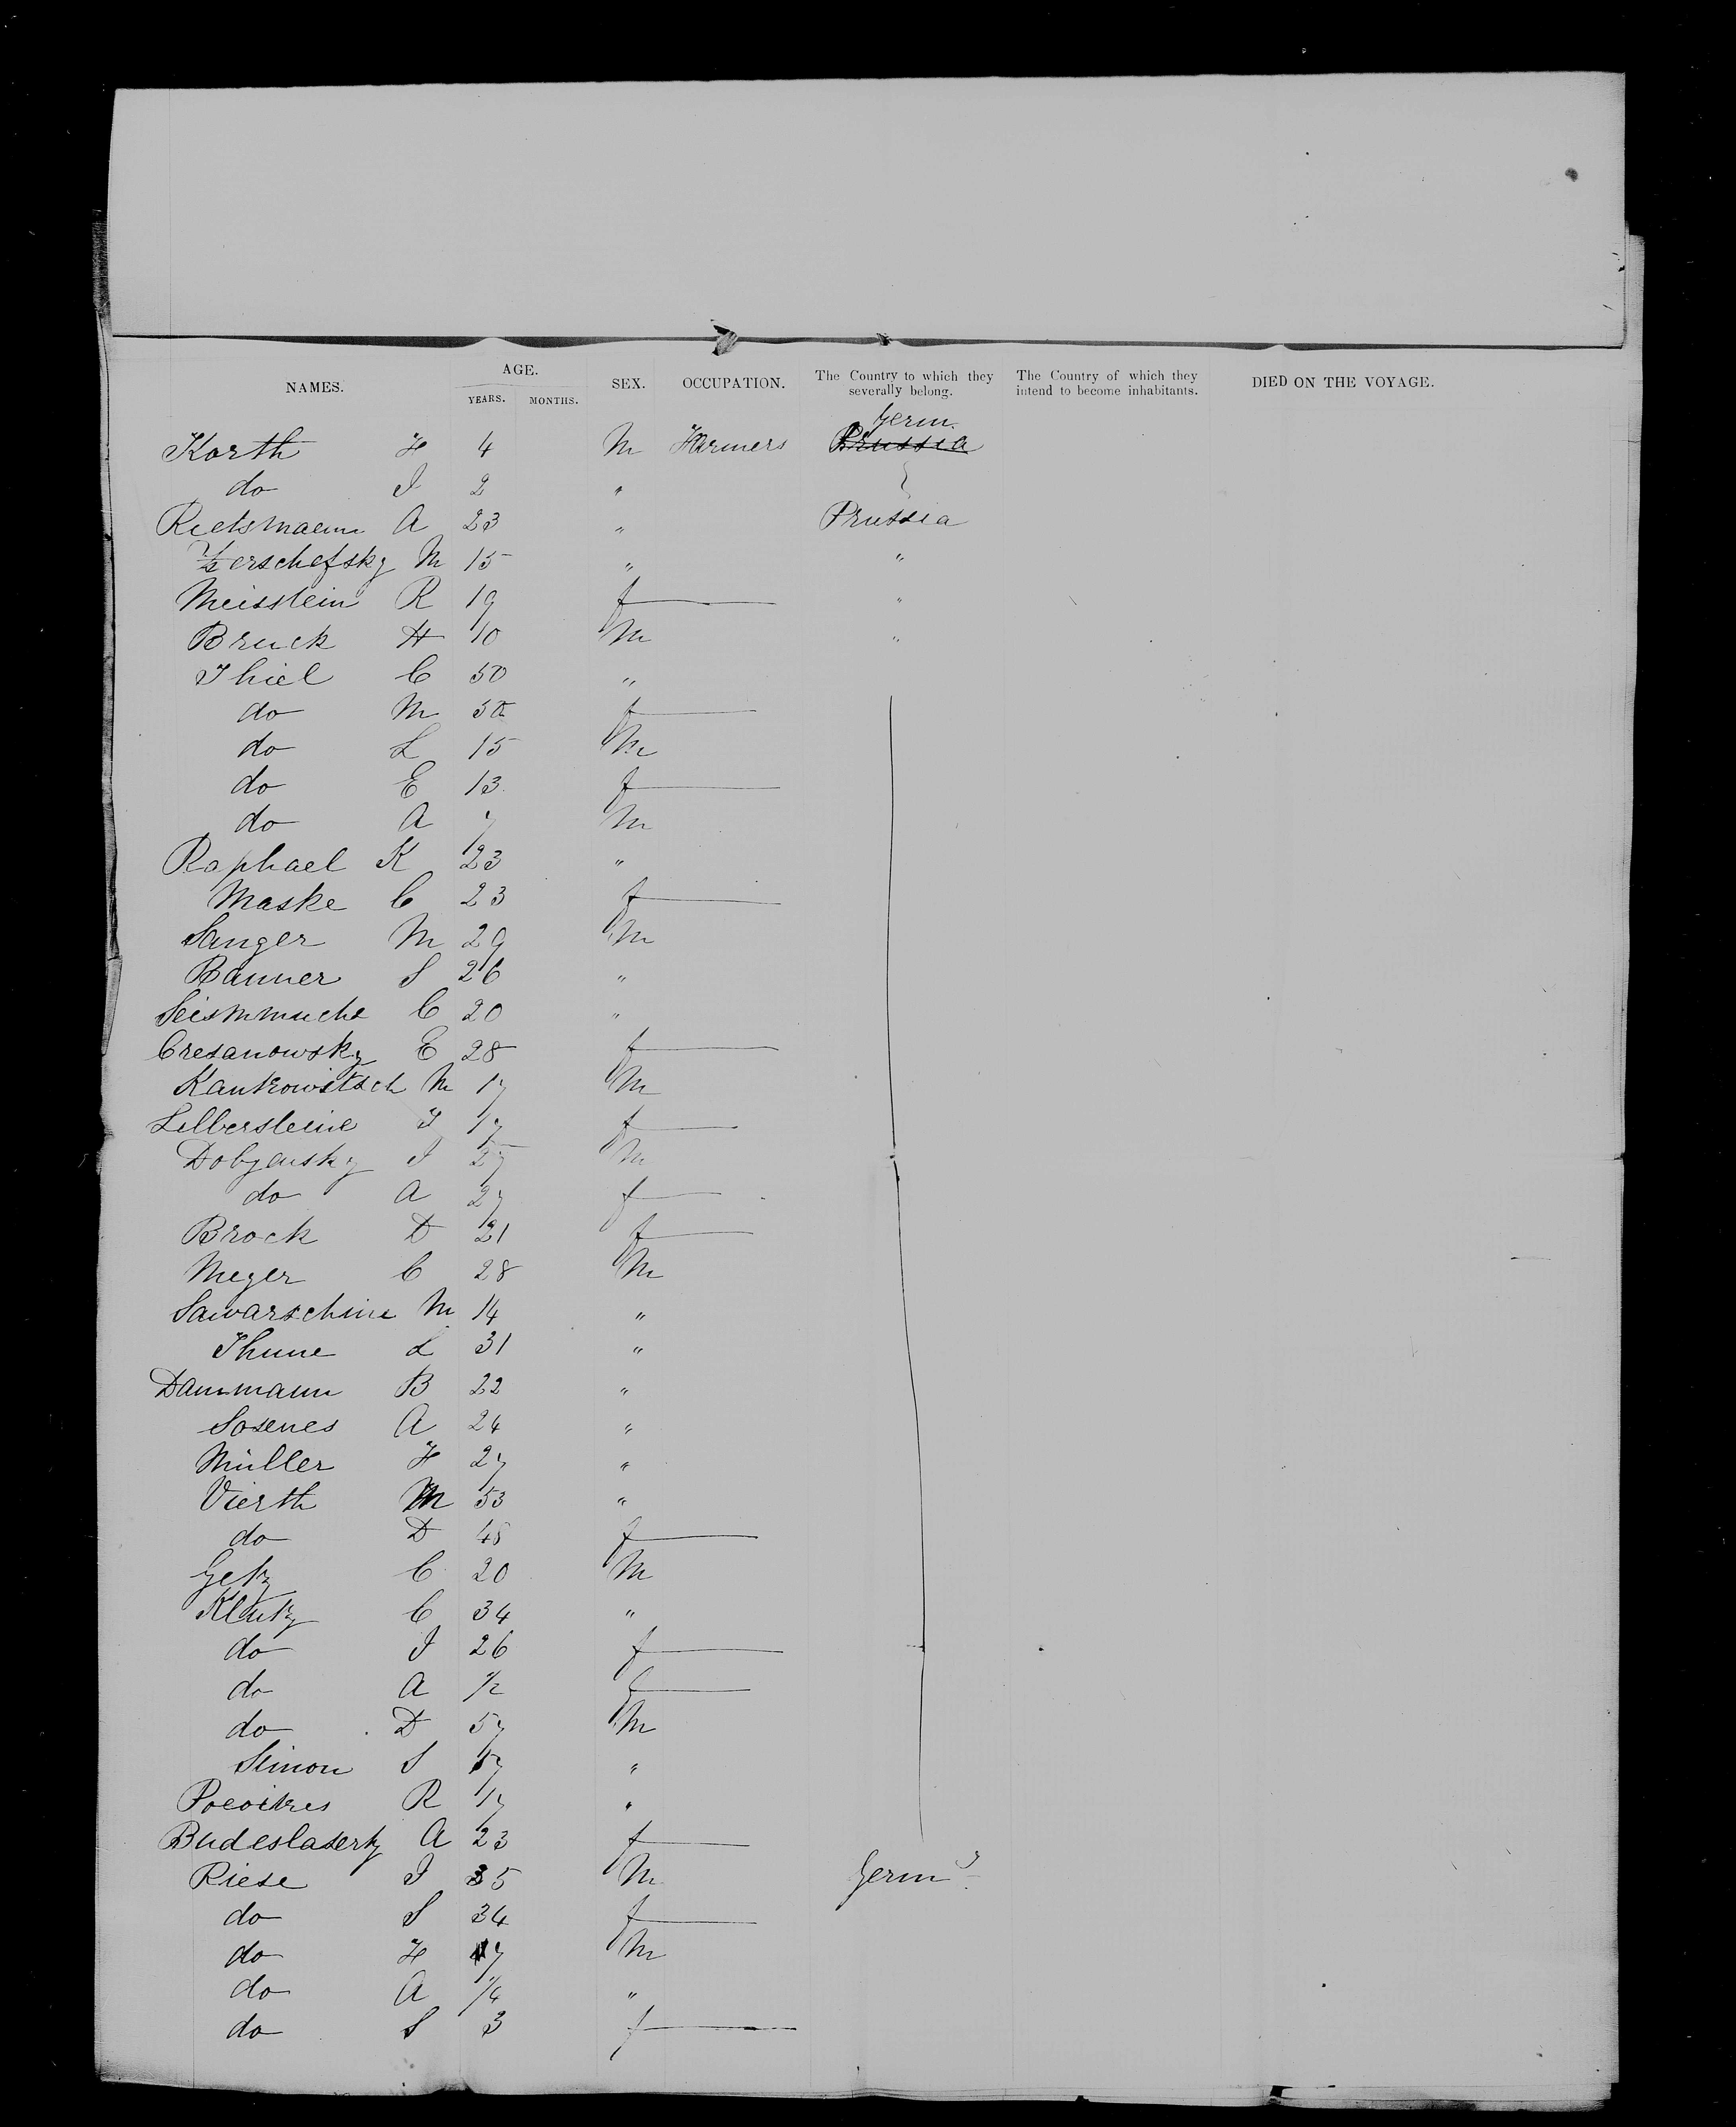 NAMES. AGE. YEARS. MONTHS. SEX. OCCUPATION. The Country to which they severally belong. The Country of which they intend to become inhabitants. DIED ON THE VOYAGE.
Germ.
Korth H 4 M Farmers Prussia
do J 2 "
Rietsmann A 23 " Prussia
M 15 " "
Meisstein R 19 f "
Bruck H 10 M "
Thiel C 50 "
do M 50 f
do L 15 M
do E 13 f
do A 7 M
Raphael K 23 "
Maske C 23 f
Sanger M 29 M
Banner S 26 "
C 20 "
Cresanowsky E 28 f
Kantrowitsch M 17 M
Lilbersteine J 17 f
Dobyensky J 27 M
do A 27 f
Brock D 21 f
Meyer C 28 M
Sawarschine M 14 "
Thune L 31 "
Dammann B 22 "
Sosenes A 24 "
Müller H 27 "
Vierth M 53 "
do D 48 f
Getz C 20 M
Klutz C 34 "
do J 26 f
do A 1/2 f
do D 57 M
Simon S 17 "
R 17 "
A 23 f
Riese J 35 M Germy
do S 34 f
do H 7 M
do A 1/4 "
do S 3 f